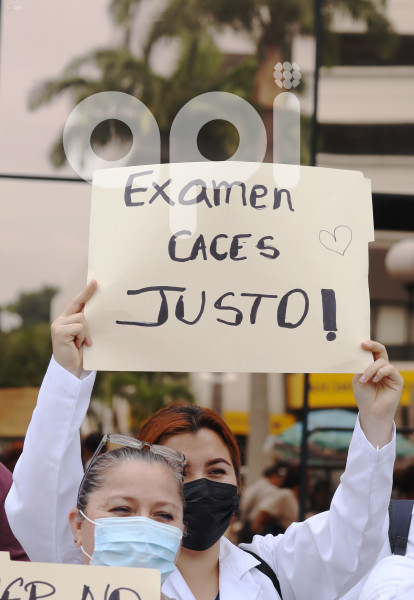 api
Examen
CACES
JUSTO!
ER NO